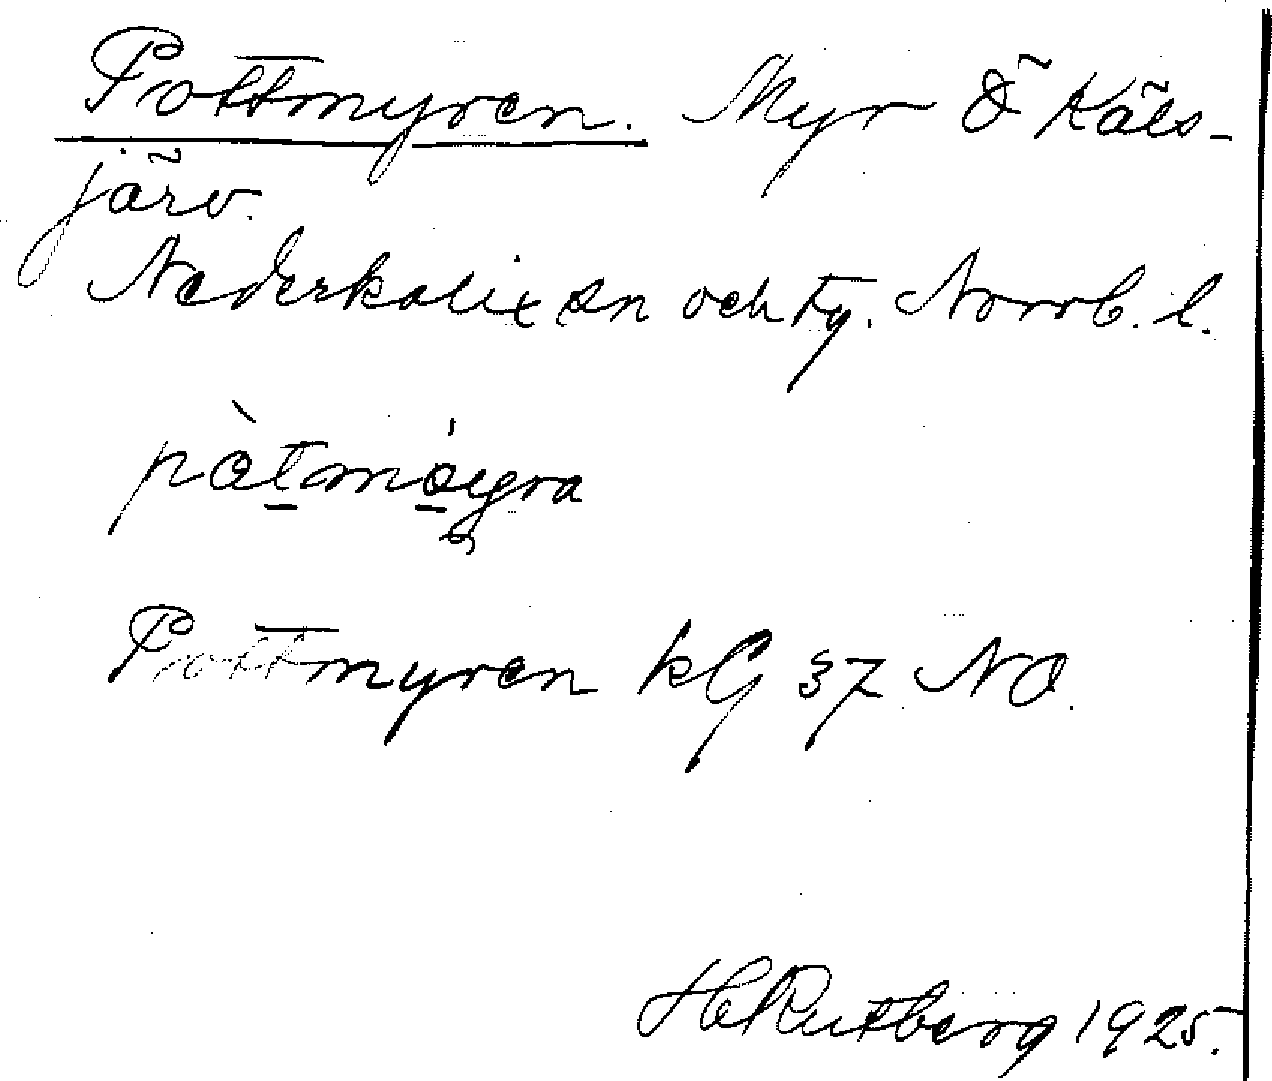 Pottmyren. Myr Ö Käls-
järv.
Nederkalix sn och tg. Norrb. l.
pòtmóyra
Pottmyren kG 37 NO.
H Rutberg 1925.